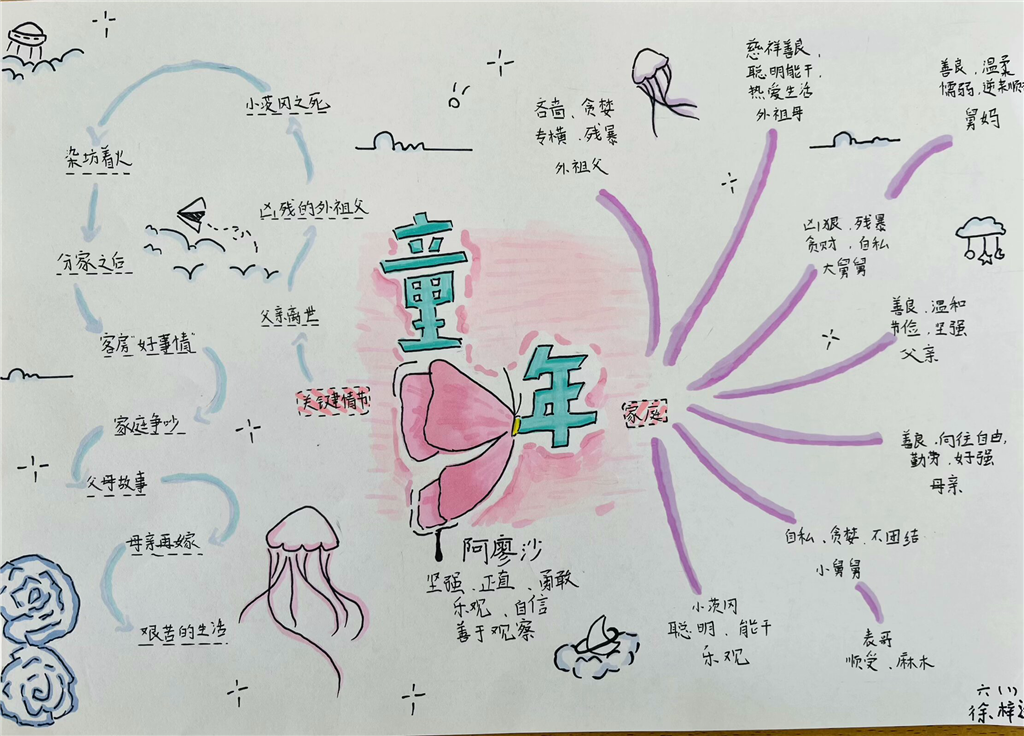 童年
关键情节
父亲离世
凶残的外祖父
小茨冈之死
染坊着火
分家之后
客房"好事情"
家庭争吵
父母故事
母亲再嫁
艰苦的生活
阿廖沙
坚强、正直、勇敢
乐观、自信
善于观察
家庭
吝啬、贪婪
专横、残暴
外祖父
慈祥善良、
聪明能干,
热爱生活
外祖母
善良、温柔
懦弱、逆来顺
舅妈
凶狠、残暴
贪财、自私
大舅舅
善良、温和
节俭、坚强
父亲
善良、向往自由,
勤劳、好强
母亲
自私、贪婪、不团结
小舅舅
表哥
顺受、麻木
小茨冈
聪明、能干
乐观
六(1)
徐梓